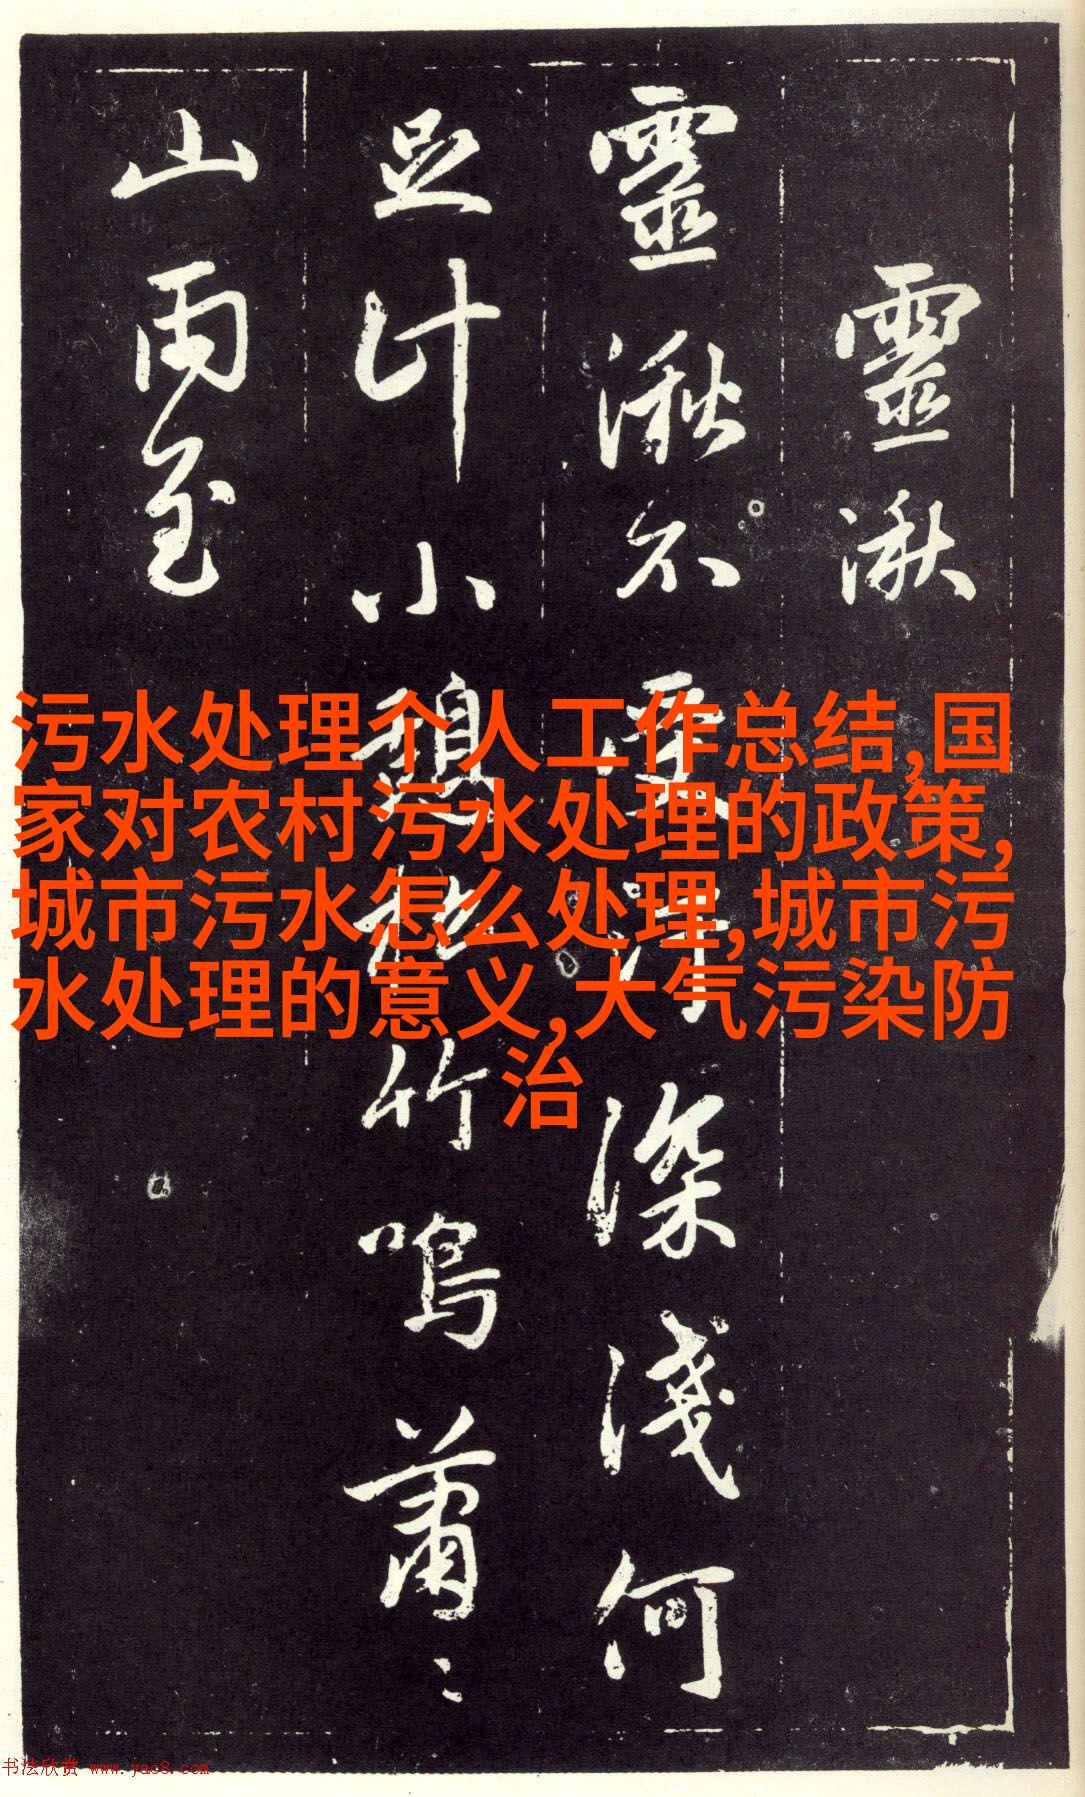 靈湫
靈湫不深淺何
足計小憩竹鳴蕭〻
山雨至
污水处理个人工作总结,国
家对农村污水处理的政策,
城市污水怎么处理,城市污
水处理的意义,大气污染防
治
书法欣赏 www.yac8.com